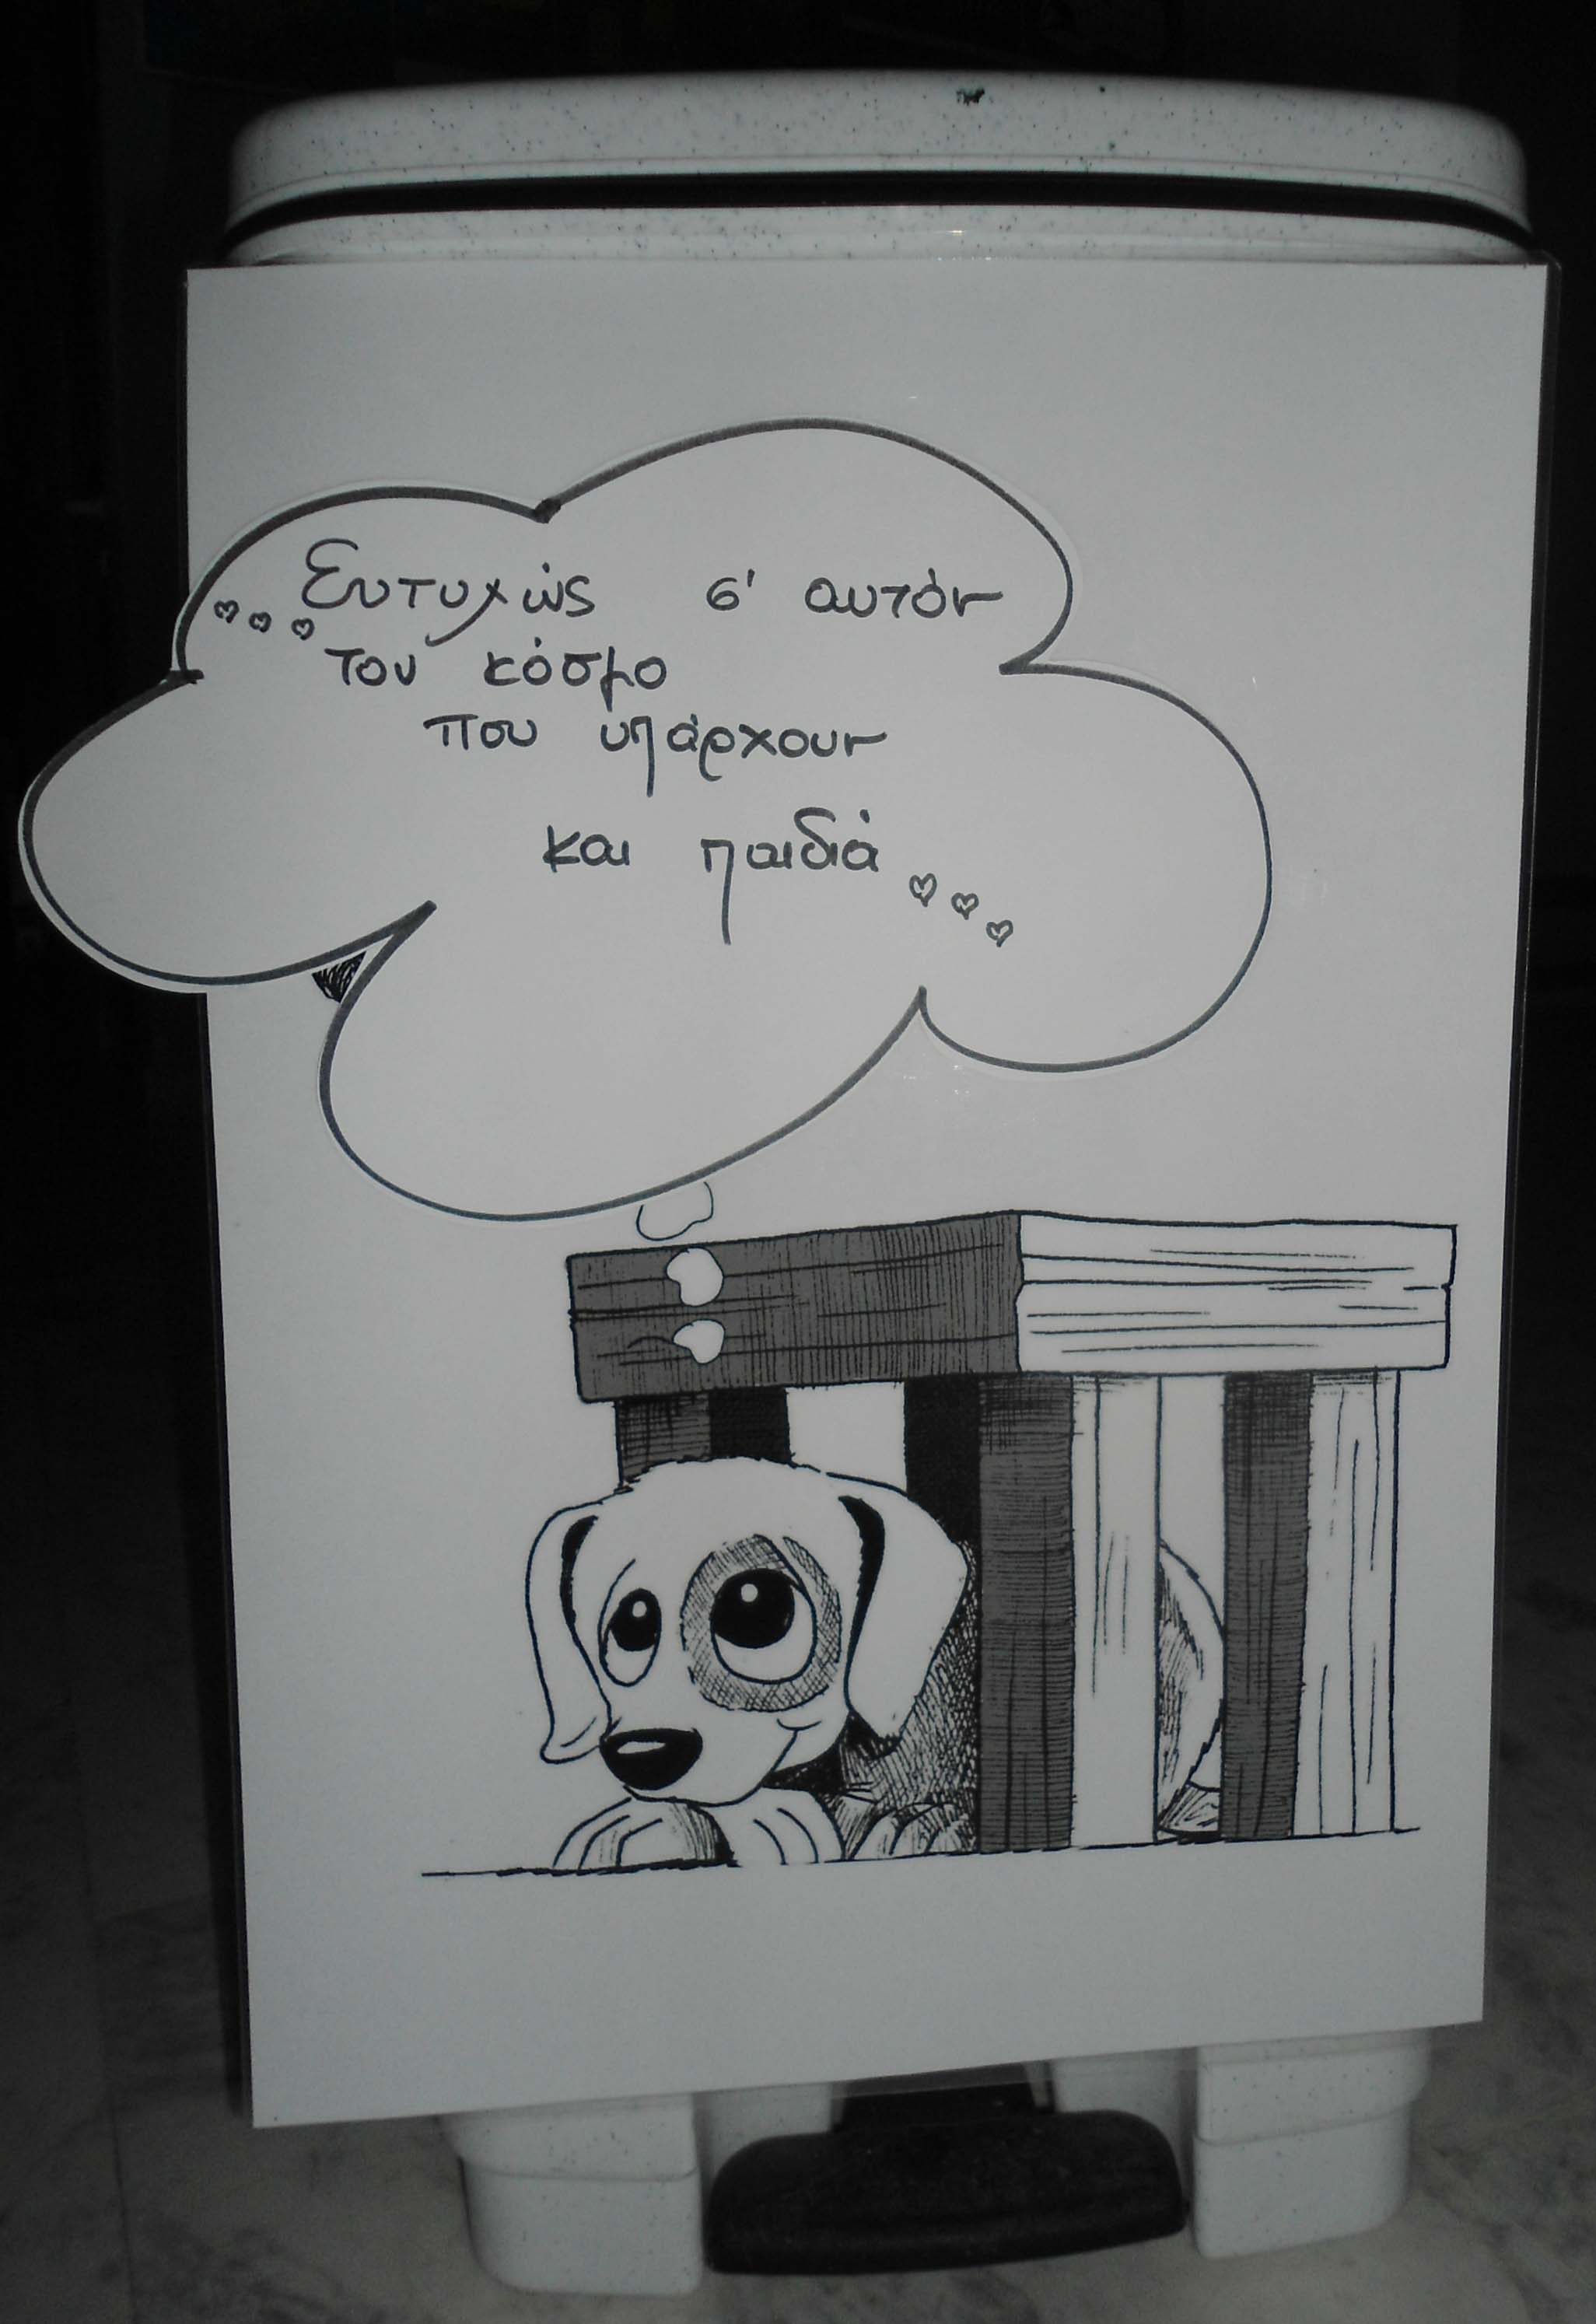 Ευτυχώς σ' αυτόν
τον κόσμο
που υπάρχουν
και παιδιά